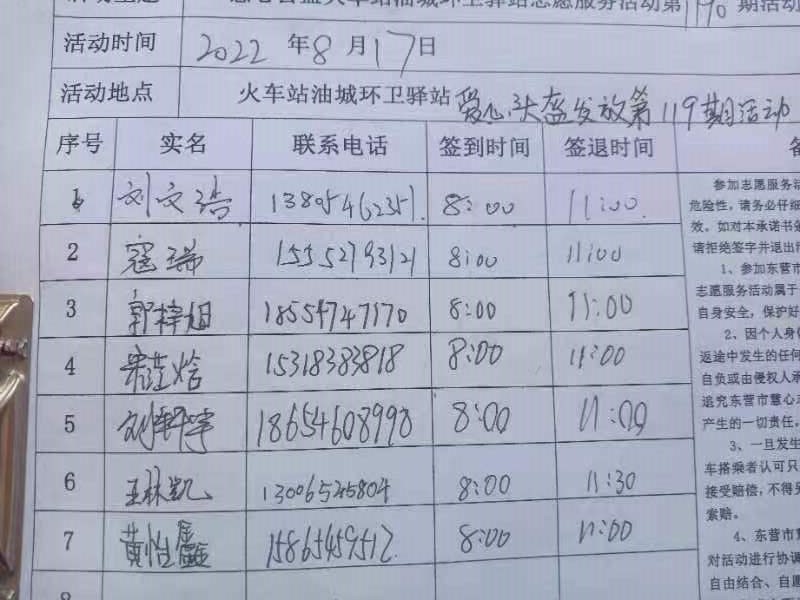 慧心公益火车站油城环卫驿站志愿服务活动第1190期活动
活动时间 2022 年 8 月 17 日
活动地点 火车站油城环卫驿站 爱心头盔发放第119期活动
序号 实名 联系电话 签到时间 签退时间
1 刘文浩 13805462351 8:00 11:00
2 寇瑞 15552793121 8:00 11:00
3 郭梓旭 18554747170 8:00 11:00
4 15318383818 8:00 11:00
5 刘轩宇 18654608998 8:00 11:00
6 王林凯 13006525804 8:00 11:30
7 黄怡鑫 15865459512 8:00 11:00
8
参加志愿服务活
危险性，请务必仔细
效。如对本承诺书
请拒绝签字并退出
1、参加东营市
志愿服务活动属于
自身安全，保护好
2、因个人身
返途中发生的任何
自负或由侵权人承
追究东营市慧心志
产生的一切责任。
3、一旦发生
车搭乘者认可只
接受赔偿，不得另
索赔。
4、东营市慧
对活动进行协调
自由结合、自愿